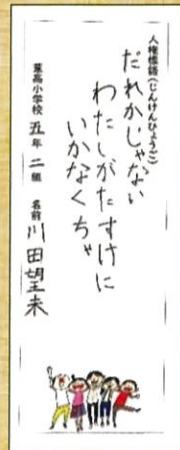 人権標語(じんけんひょうご)
だれかじゃない
わたしがたすけに
いかなくちゃ
葉高小学校 五年 二組 名前 川田望未